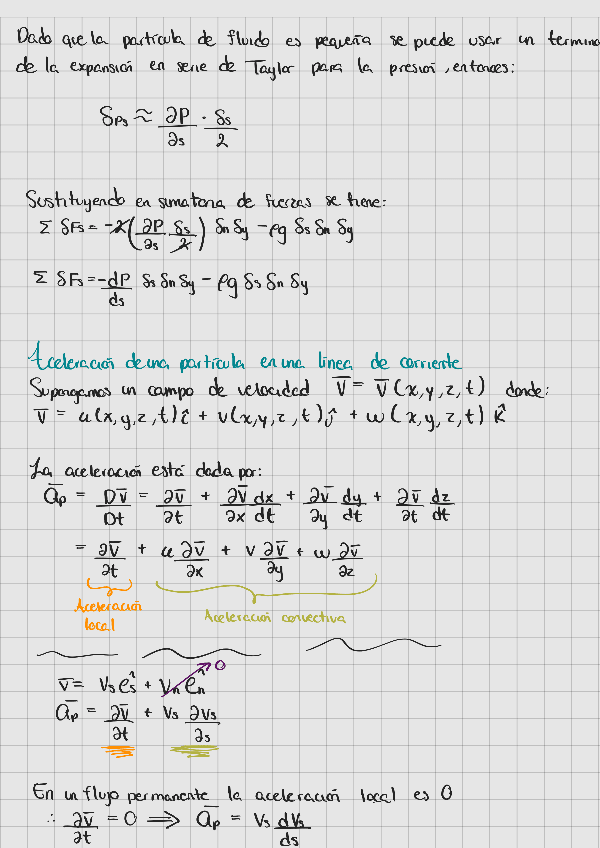 Dado que la particula de fluido es pequeña se puede usar un termino
de la expansión en serie de Taylor para la presión, entonces:
δPs ≈ ∂P/∂s · δs/2
Sustituyendo en sumatoria de fuerzas se tiene:
Σ δFs = -2(∂P/∂s δs/2) δn δy - ρg δs δn δy
Σ δFs = -dP/ds δs δn δy - ρg δs δn δy
Aceleración de una partícula en una línea de corriente
Supongamos un campo de velocidad V̄ = V̄(x,y,z,t) donde:
V̄ = u(x,y,z,t)î + v(x,y,z,t)ĵ + w(x,y,z,t) k̂
La aceleración está dada por:
āp = Dv̄/Dt = ∂v̄/∂t + ∂v̄/∂x dx/dt + ∂v̄/∂y dy/dt + ∂v̄/∂t dz/dt
= ∂v̄/∂t + u ∂v̄/∂x + v ∂v̄/∂y + w ∂v̄/∂z
Aceleración local
Aceleración convectiva
v̄ = Vs ês + Vn ên 0
āp = ∂v̄/∂t + Vs ∂Vs/∂s
En un flujo permanente la aceleración local es 0
∴ ∂v̄/∂t = 0 ⟹ āp = Vs dVs/ds